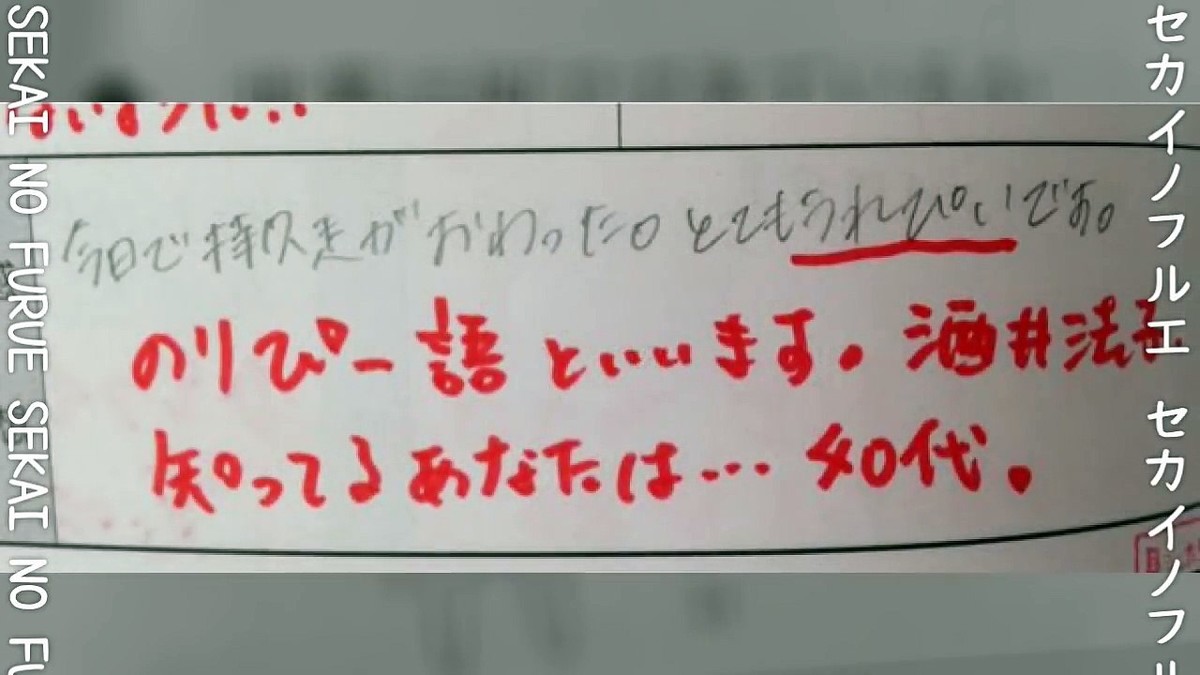 SEKAI NO FURUE SEKAI NO FU
今日で持久走がおわった。とてもうれぴいです。
のりぴー語といいます。酒井法子
知ってるあなたは…40代。
セカイノフルエ セカイノフル